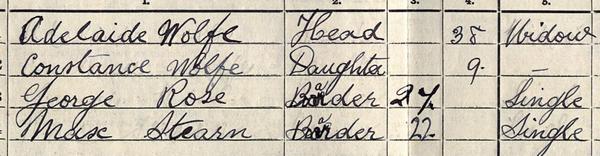 1. 2. 3. 4. 5.
Adelaide Wolfe Head 38 Widow
Constance Wolfe Daughter 9. –
George Rose Boarder 27. Single
Max Stearn Boarder 22 Single